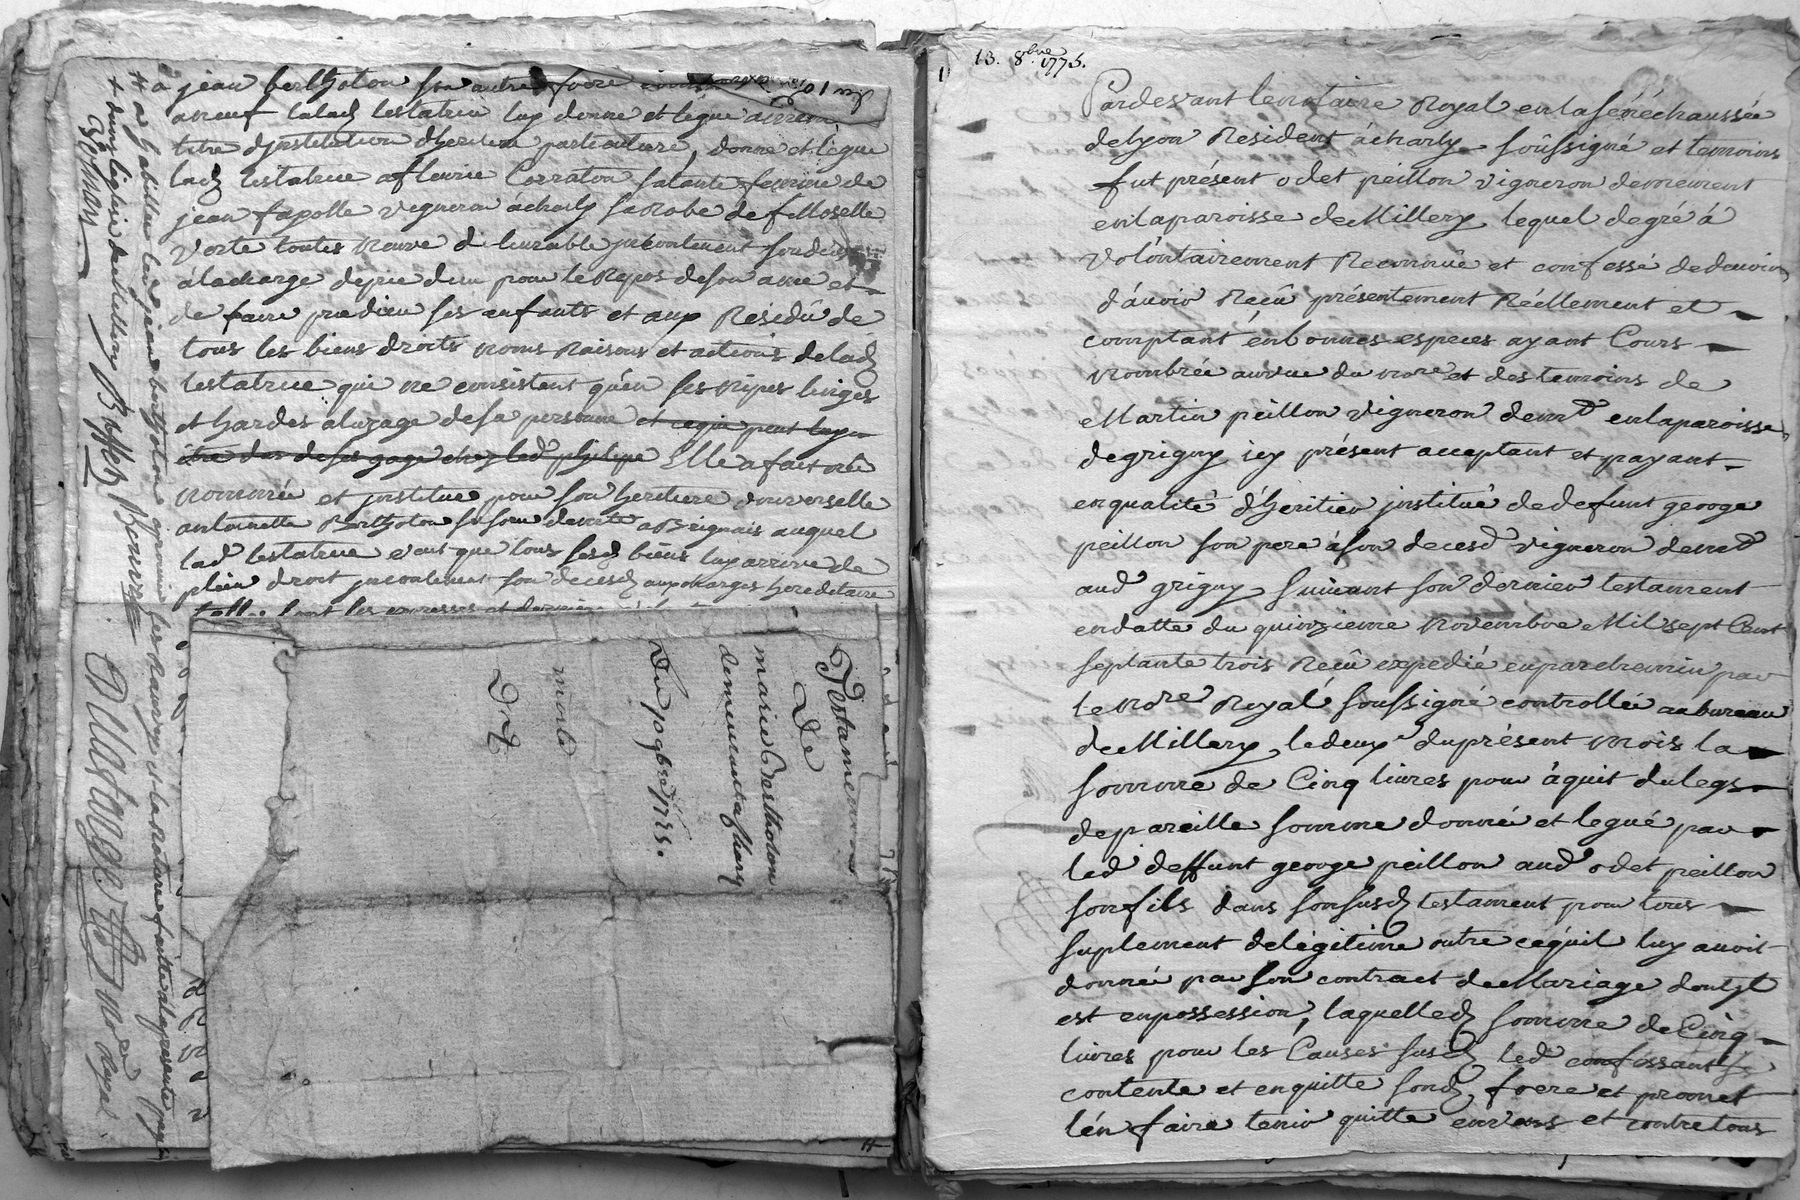 a jean berthoton son autre frere
a neuf lad testatrice luy donne et legue
titre d'jnstitution d'heritiere particuliere, donne et legue
lad testatrice a fleurie Corraton sa tante femme de
jean fayolle vigneron a charly sa robe de filloselle
verte toutte neuve d livrable jncontinent son deces
a la charge de prie dieu pour le Repos de son ame et
de faire prie dieu ses enfants et aux Residû de
tous les biens droits noms Raisons et actions de lad
testatrice qui ne consistent qu'en ses nipes linges
et hardes a lusage de sa personne et ce qui peut luy
être dus de ses gage chez led philipe Elle a fait crée
nommée et jnstitue pour son heritiere universelle
antoinette Berthoton sa soeur demte a Brignais auquel
lad testatrice veut que tous sesd biens luy arrive de
plein droit jncontinent son decesd aux charges hereditaire
+ a habiller led jean berthoton
et la Rature faitte a la presente page
+ d'une ligne
Testament
De
marie Berthoton
demeurante a Charly
Du 10 9bre 1755.
13. 8bre 1775.
Pardevant le notaire Royal en la sénéchaussée
de Lyon Resident à charly soûssigné et temoins
fut présent odet peillon vigneron demeurent
en la paroisse de Millery lequel de gré à
volontairement Reconnüe et confessé de devoir
d'avoir Reçû présentement Réellement et
comptant en bonnes especes ayant Cours
nombrée au vue du nore et des temoins de
Martin peillon vigneron demt en la paroisse
de grigny icy présent acceptant et payant
en qualité d'héritier jnstitué de defunt george
peillon son pere à son decesd vigneron demt
aud grigny suivant son dernier testament
en datte du quinzieme Novembre Mil sept Cent
septante trois Reçû expedié en parchemin par
le nore Royal soussigné controllée au bureau
de Millery le deux du présent mois la
somme de Cinq livres pour àquit du legs
de pareille somme donné et legué par
led deffunt george peillon aud odet peillon
son fils dans son susd testament pour tous
suplement de légitime outre ce qu'il luy avoit
donné par son contract de Mariage dont jl
est en possession, laquelled somme de Cinq
livres pour les Causes susd led confessant se
contente et en quitte sond frere et promet
l'en faire tenir quitte envers et contre tous